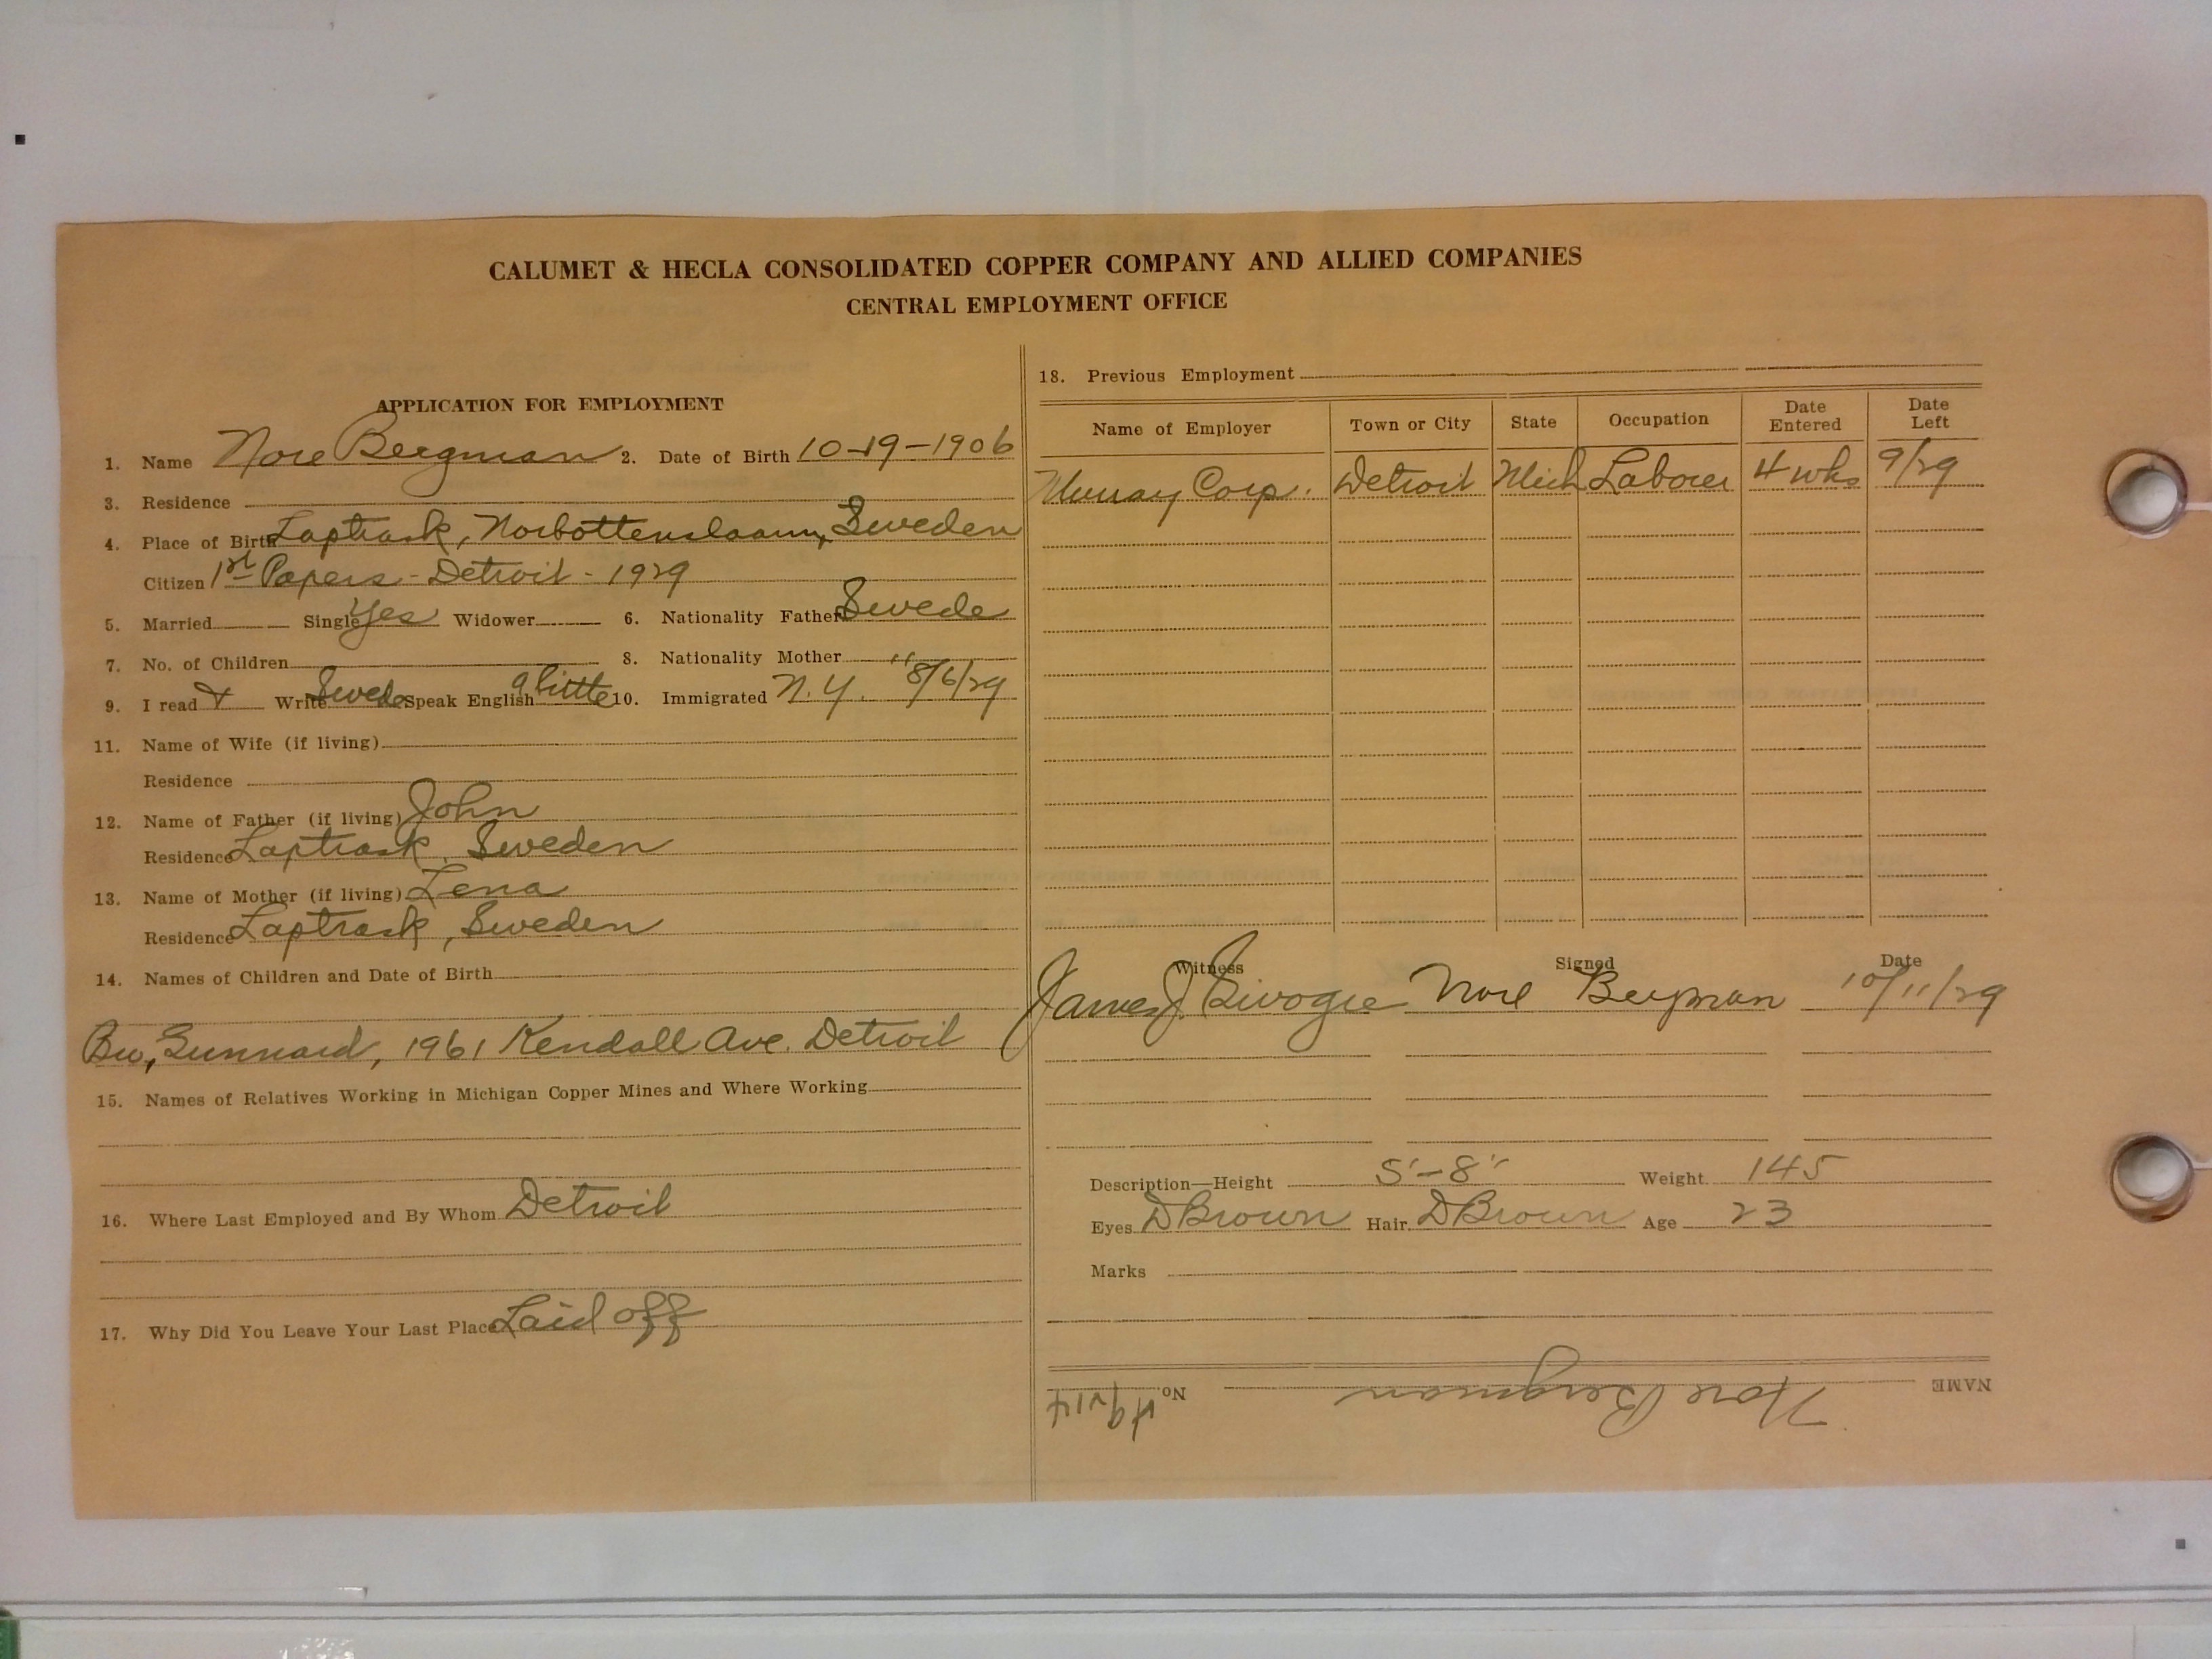 CALUMET & HECLA CONSOLIDATED COPPER COMPANY AND ALLIED COMPANIES
CENTRAL EMPLOYMENT OFFICE
APPLICATION FOR EMPLOYMENT
1. Name Nore Bergman 2. Date of Birth 10-19-1906
3. Residence
4. Place of Birth Laptrask, Norbottenslaann, Sweden
Citizen 1st Papers - Detroit - 1929
5. Married Single Yes Widower 6. Nationality Father Swede
7. No. of Children 8. Nationality Mother "
9. I read & Write Swede Speak English a little 10. Immigrated N.Y. 8/6/29
11. Name of Wife (if living)
Residence
12. Name of Father (if living) John
Residence Laptrask, Sweden
13. Name of Mother (if living) Lena
Residence Laptrask, Sweden
14. Names of Children and Date of Birth
Bro, Gunnard, 1961 Kendall Ave. Detroit
15. Names of Relatives Working in Michigan Copper Mines and Where Working
16. Where Last Employed and By Whom Detroit
17. Why Did You Leave Your Last Place Laid off
18. Previous Employment
Name of Employer Town or City State Occupation Date Entered Date Left
Murray Corp. Detroit Mich Laborer 4 wks 9/29
Witness Signed Date
James J. Nore Bergman 10/11/29
Description—Height 5'-8" Weight 145
Eyes D Brown Hair D Brown Age 23
Marks
NAME Nore Bergman No.